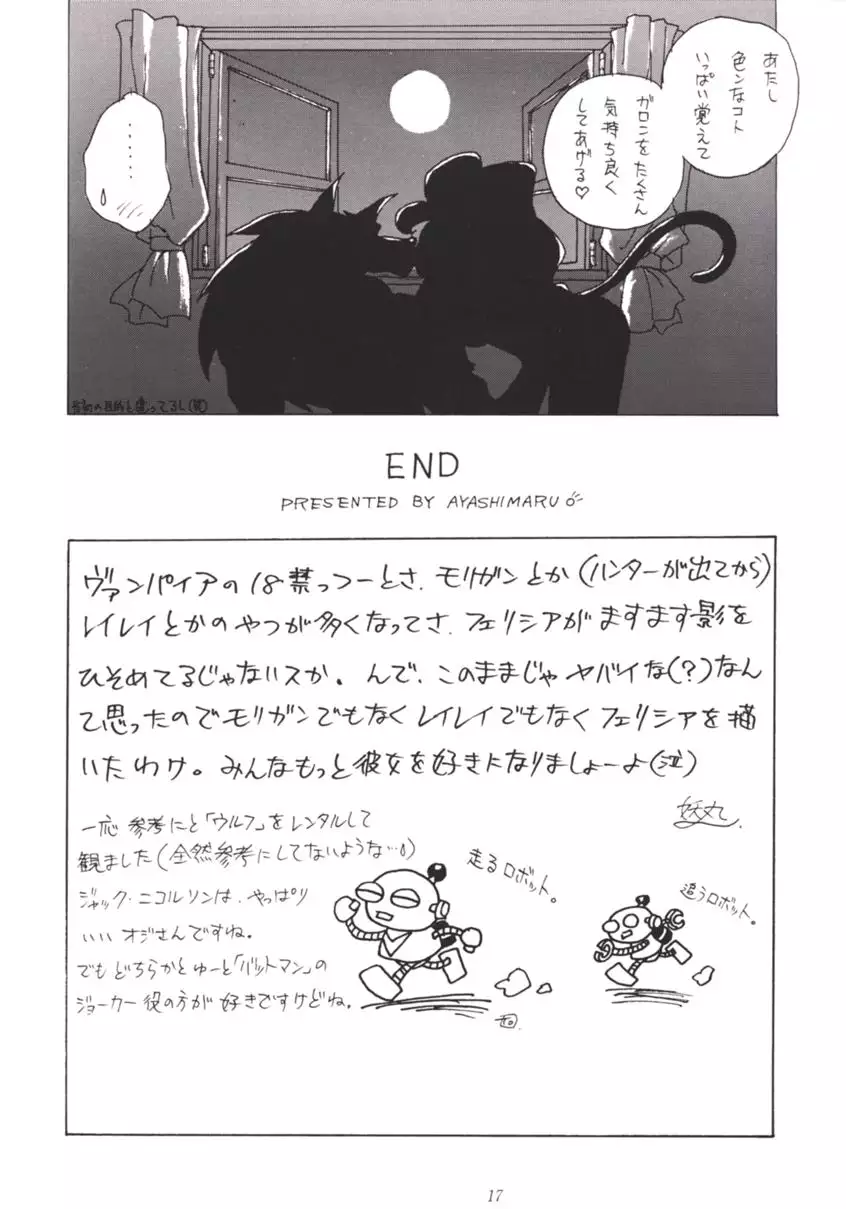 あたし
色ンなコト
いっぱい覚えて
ガロンをたくさん
気持ち良く
してあげる♡
・・・・・・
違ってるし(笑)
END
PRESENTED BY AYASHIMARU
ヴァンパイアの18禁っつーとさ、モリガンとか(ハンターが出てから)
レイレイとかのやつが多くなってさ、フェリシアがますます影を
ひそめてるじゃないスか。んで、このままじゃヤバイな(?)なん
て思ったのでモリガンでもなくレイレイでもなくフェリシアを描
いたわけ。みんなもっと彼女を好きになりましょーよ(泣)
妖丸.
一応 参考にと「ウルフ」をレンタルして
観ました(全然参考にしてないような…)
ジャック・ニコルソンは、やっぱり
いい オジさんですね。
でも どちらかとゆーと「バットマン」の
ジョーカー役の方が 好きですけどね。
走るロボット。
追うロボット。
17